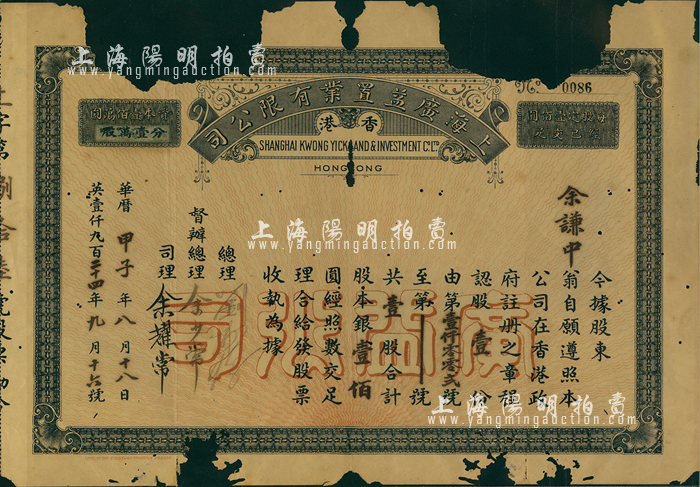 上海陽明拍賣
www.yangmingauction.com
No 0086
上海廣益置業有限公司
香港
SHANGHAI KWONG YICK LAND & INVESTMENT Co LTD
HONGKONG
分壹萬股
余謙中
今據股東
翁自願遵照本
公司在香港政
府註册之章程
認股壹份
由第壹仟零零弍號
至第 號
共壹股合計
股本銀壹佰
圓經照數交足
理合給發股票
收執為據
總理
督辦總理
司理 余耀常
華曆 甲子 年 八 月 十八 日
英壹仟九百二十四年 九 月 十六 號
字第 捌拾陸 號
廣益公司
上海陽明拍賣
www.yangmingauction.com
上海陽明拍賣
www.yangmingauction.com